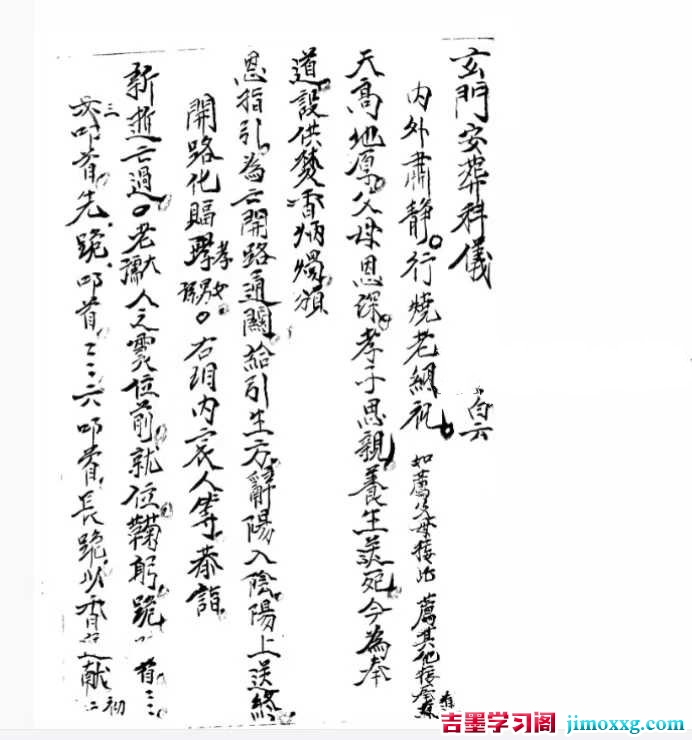 玄門安葬科儀 白云
內外肅靜。行燒老組祝 如薦父母接此 薦其他接
天高地厚父母恩深孝子思親養生送死今為奉
道設供焚香炳燭
恩指引為亡開路通關給引生方辭陽入陰陽上送終
開路化 孝 。右項內哀人等恭詣
新逝亡過。老 大人之靈位前就位鞠躬跪 首二三
三次叩首先跪叩首二三六叩首長跪以香 献 初二
吉墨学习阁 jimoxxg.com